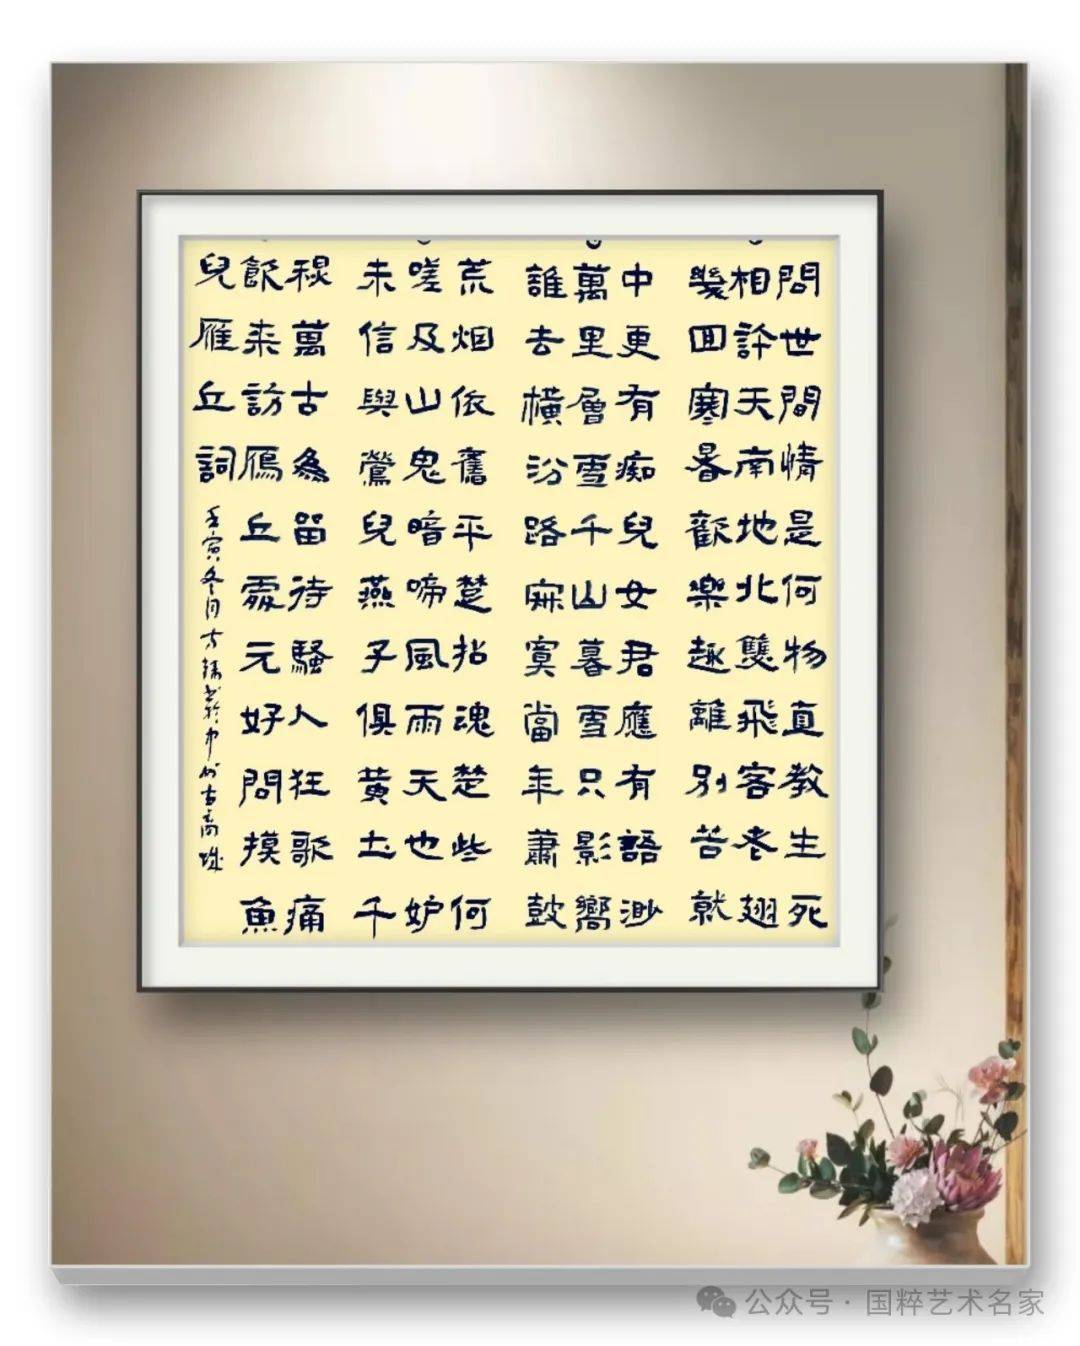 問世間情是何物直教生死
相許天南地北雙飛客老翅
幾回寒暑歡樂趣離別苦就
中更有痴兒女君應有語渺
萬里層雪千山暮雪只影嚮
誰去橫汾路寂寞當年蕭鼓
荒烟依舊平楚招魂楚些何
嗟及山鬼暗啼風雨天也妒
未信與鶯兒燕子俱黃土千
秋萬古為留待騷人狂歌痛
飲来訪鴈丘處元好問摸魚
兒雁丘詞
壬寅冬月方書於中州古商城
公众号·国粹艺术名家